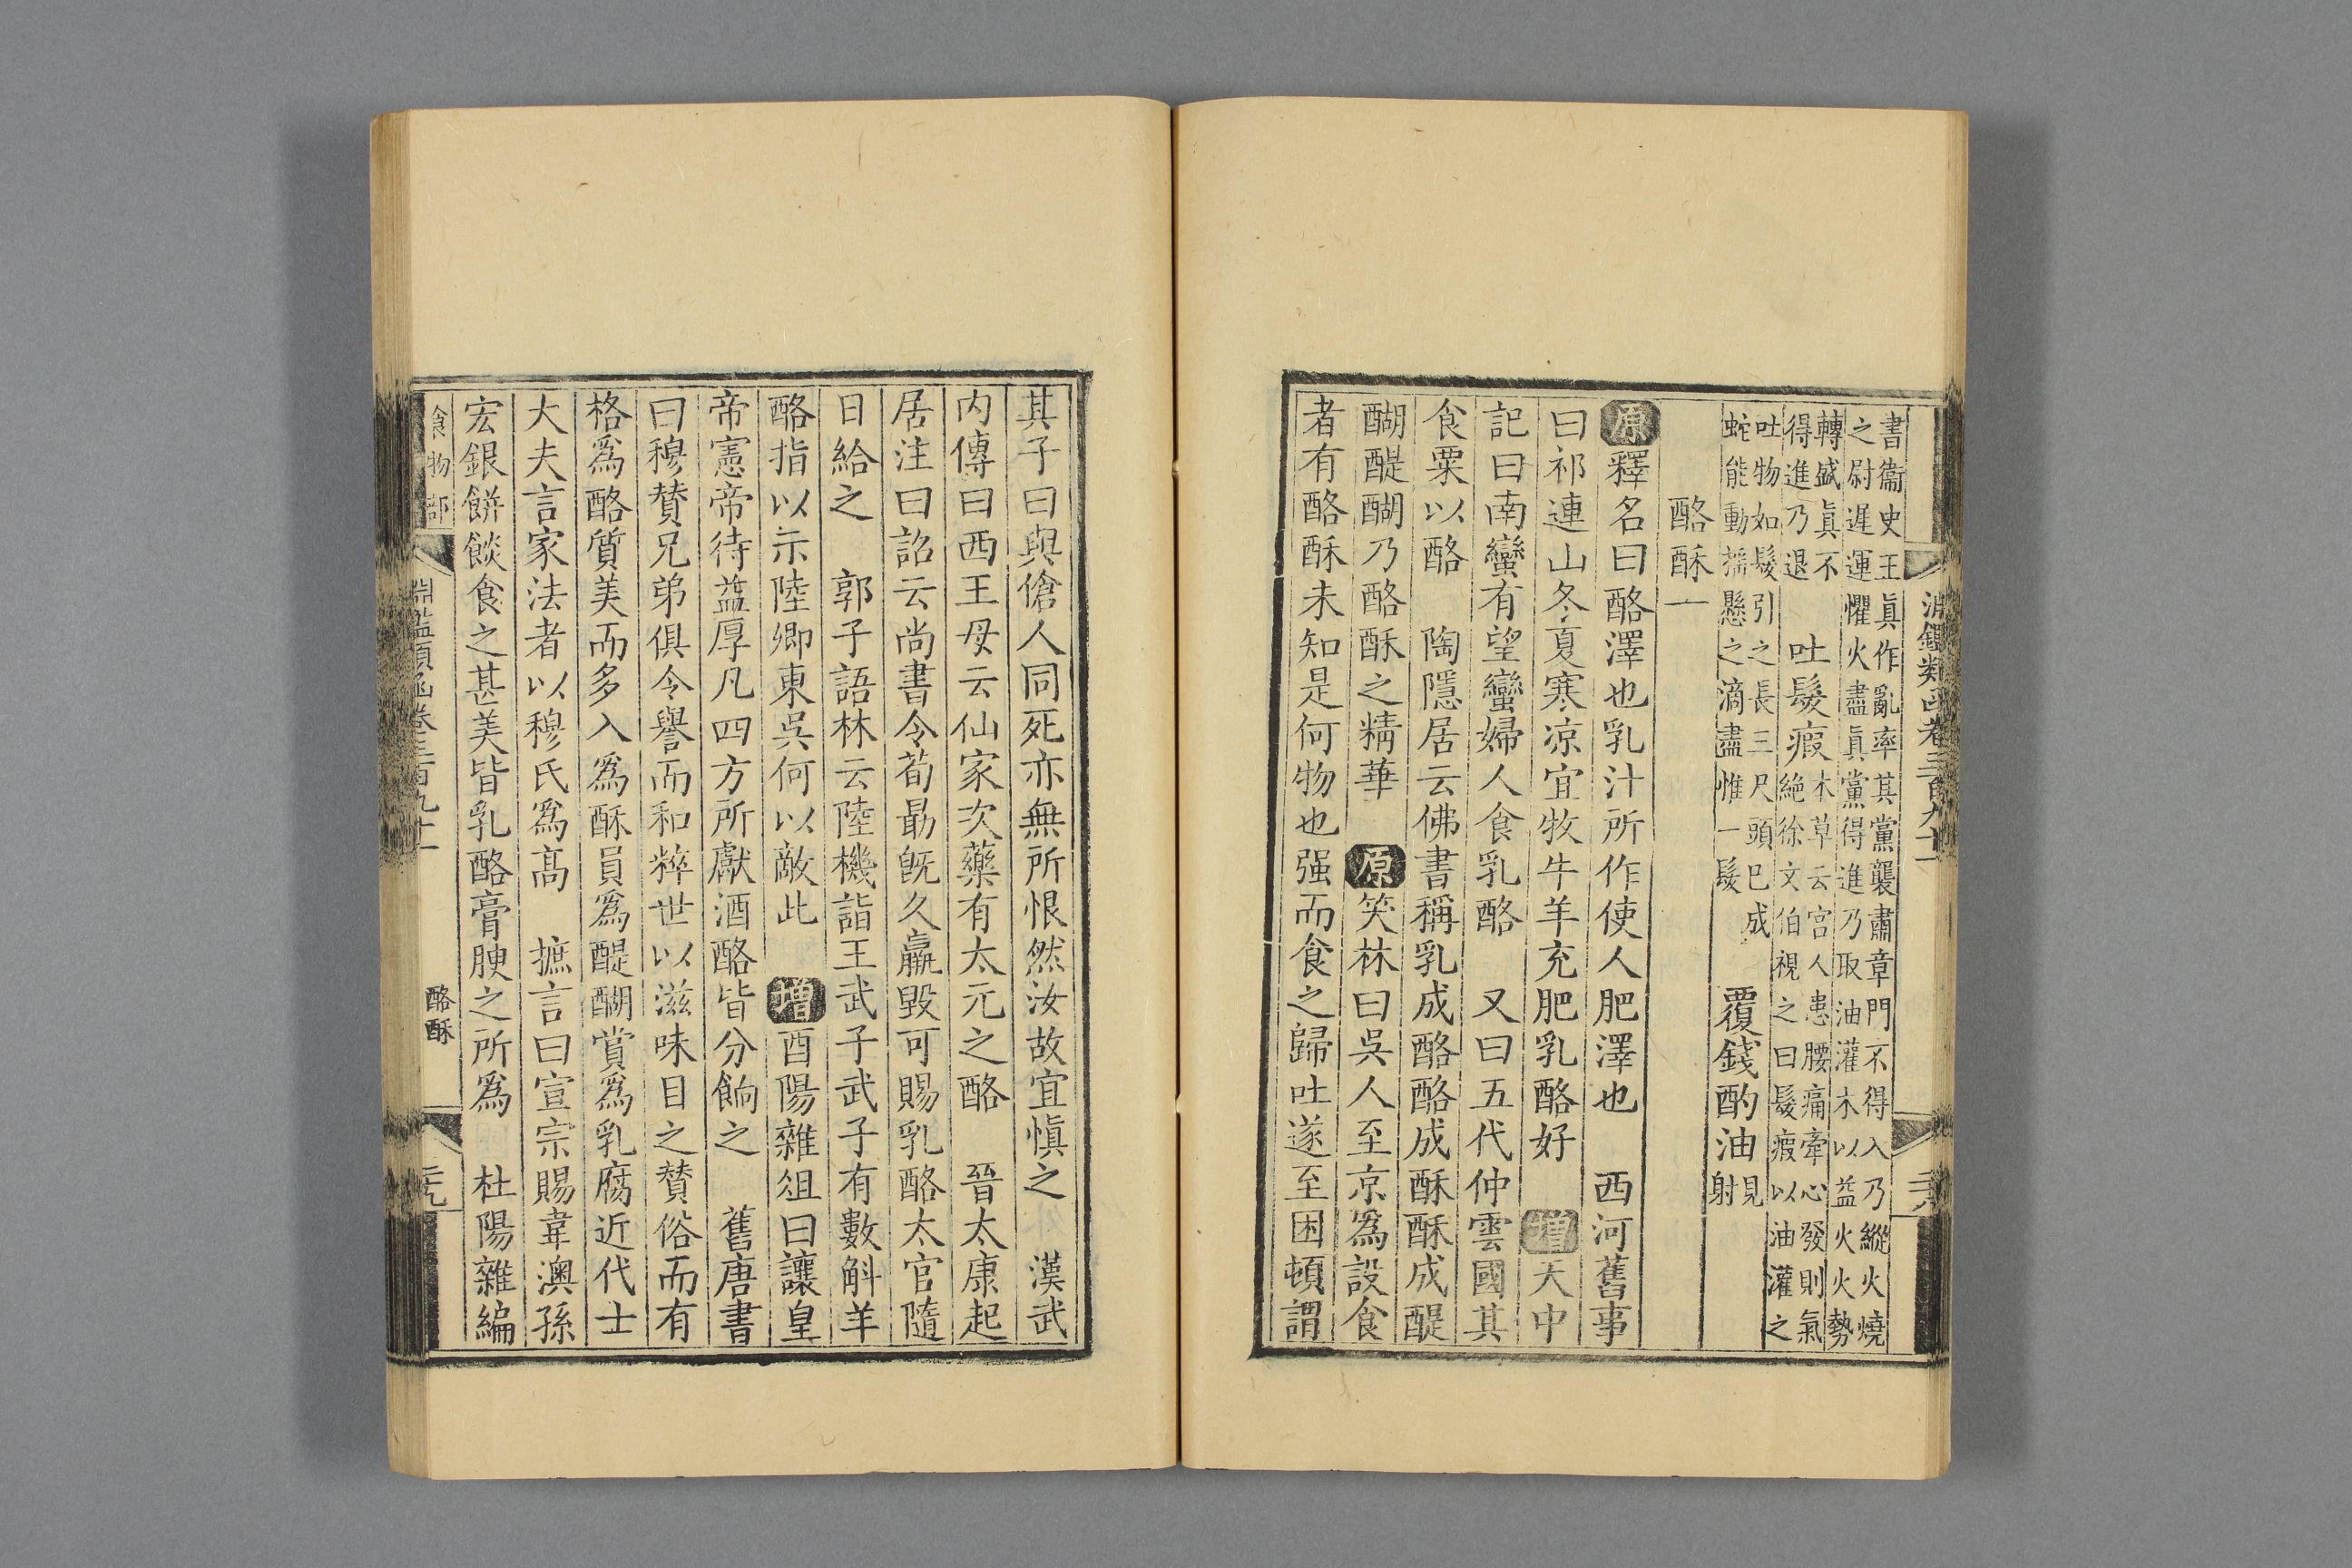 淵鑑類函卷三百九十一
書衞史王眞作亂率其黨襲肅章門不得入乃縱火燒
之尉遲運懼火盡眞黨得進乃取油灌木以益火火勢
轉盛眞不
得進乃退
吐髮瘕
本草云宮人患腰痛牽心發則氣
絶徐文伯視之曰髮瘕以油灌之
吐物如髮引之長三尺頭已成
蛇能動搖懸之滴盡惟一髮
覆錢酌油
見
射
酪酥一
原釋名曰酪澤也乳汁所作使人肥澤也　西河舊事
曰祁連山冬夏寒凉宜牧牛羊充肥乳酪好　增天中
記曰南蠻有望蠻婦人食乳酪　又曰五代仲雲國其
食粟以酪　陶隱居云佛書稱乳成酪酪成酥酥成醍
醐醍醐乃酪酥之精華　原笑林曰吳人至京爲設食
者有酪酥未知是何物也强而食之歸吐遂至困頓謂
其子曰與傖人同死亦無所恨然汝故宜愼之　漢武
内傳曰西王母云仙家次藥有太元之酪　晉太康起
居注曰詔云尚書令荀勗旣久羸毀可賜乳酪太官隨
日給之　郭子語林云陸機詣王武子武子有數斛羊
酪指以示陸卿東吳何以敵此　增酉陽雜俎曰讓皇
帝憲帝待益厚凡四方所獻酒酪皆分餉之　舊唐書
曰穆贊兄弟俱令譽而和粹世以滋味目之贊俗而有
格爲酪質美而多入爲酥員爲醍醐賞爲乳腐近代士
大夫言家法者以穆氏爲高　摭言曰宣宗賜韋澳孫
宏銀餅餤食之甚美皆乳酪膏腴之所爲　杜陽雜編
食物部
淵鑑類函卷三百九十一
酪酥